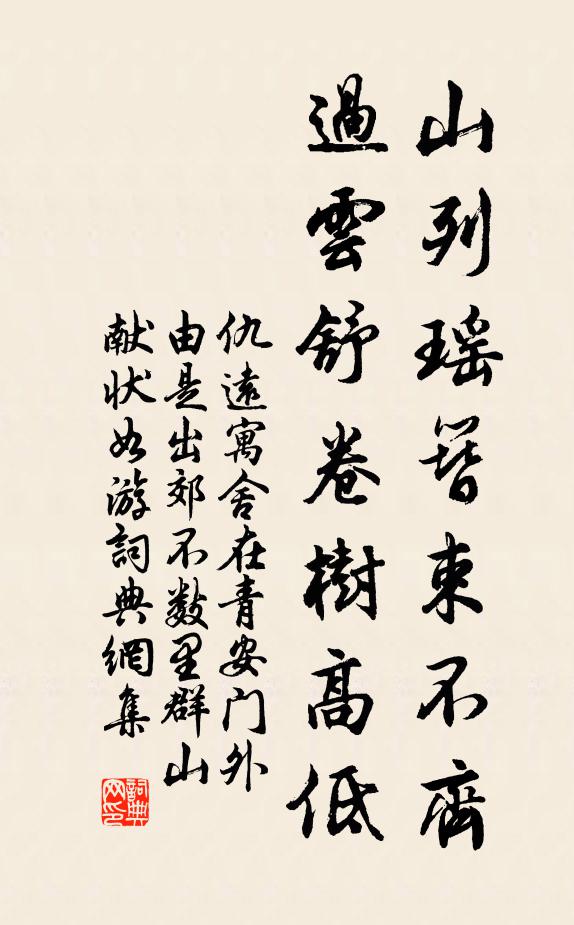 山列瑶簪束不齊
過雲舒卷樹高低
仇遠寓舍在青安门外
由是出郊不数里群山
献状如游詞典網集
詞典網印